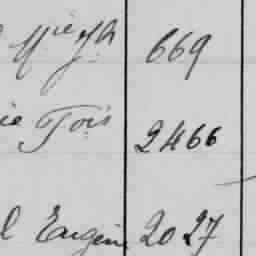 669
ie Tois 2466
l Eugène 2027